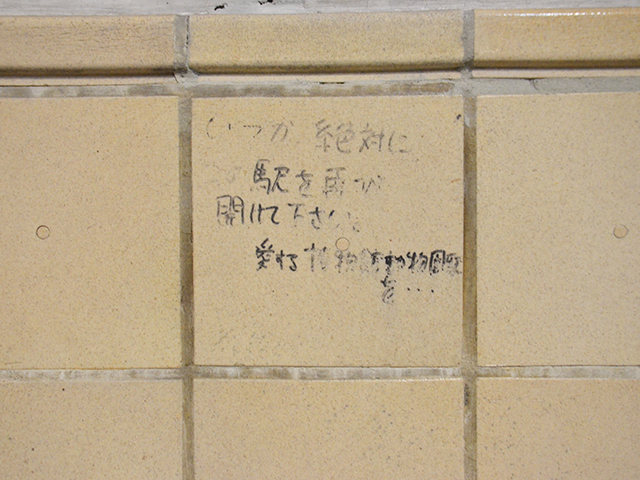 いつか 絶対に
駅を再び
開けて下さい
愛する 博物館動物園駅
を…